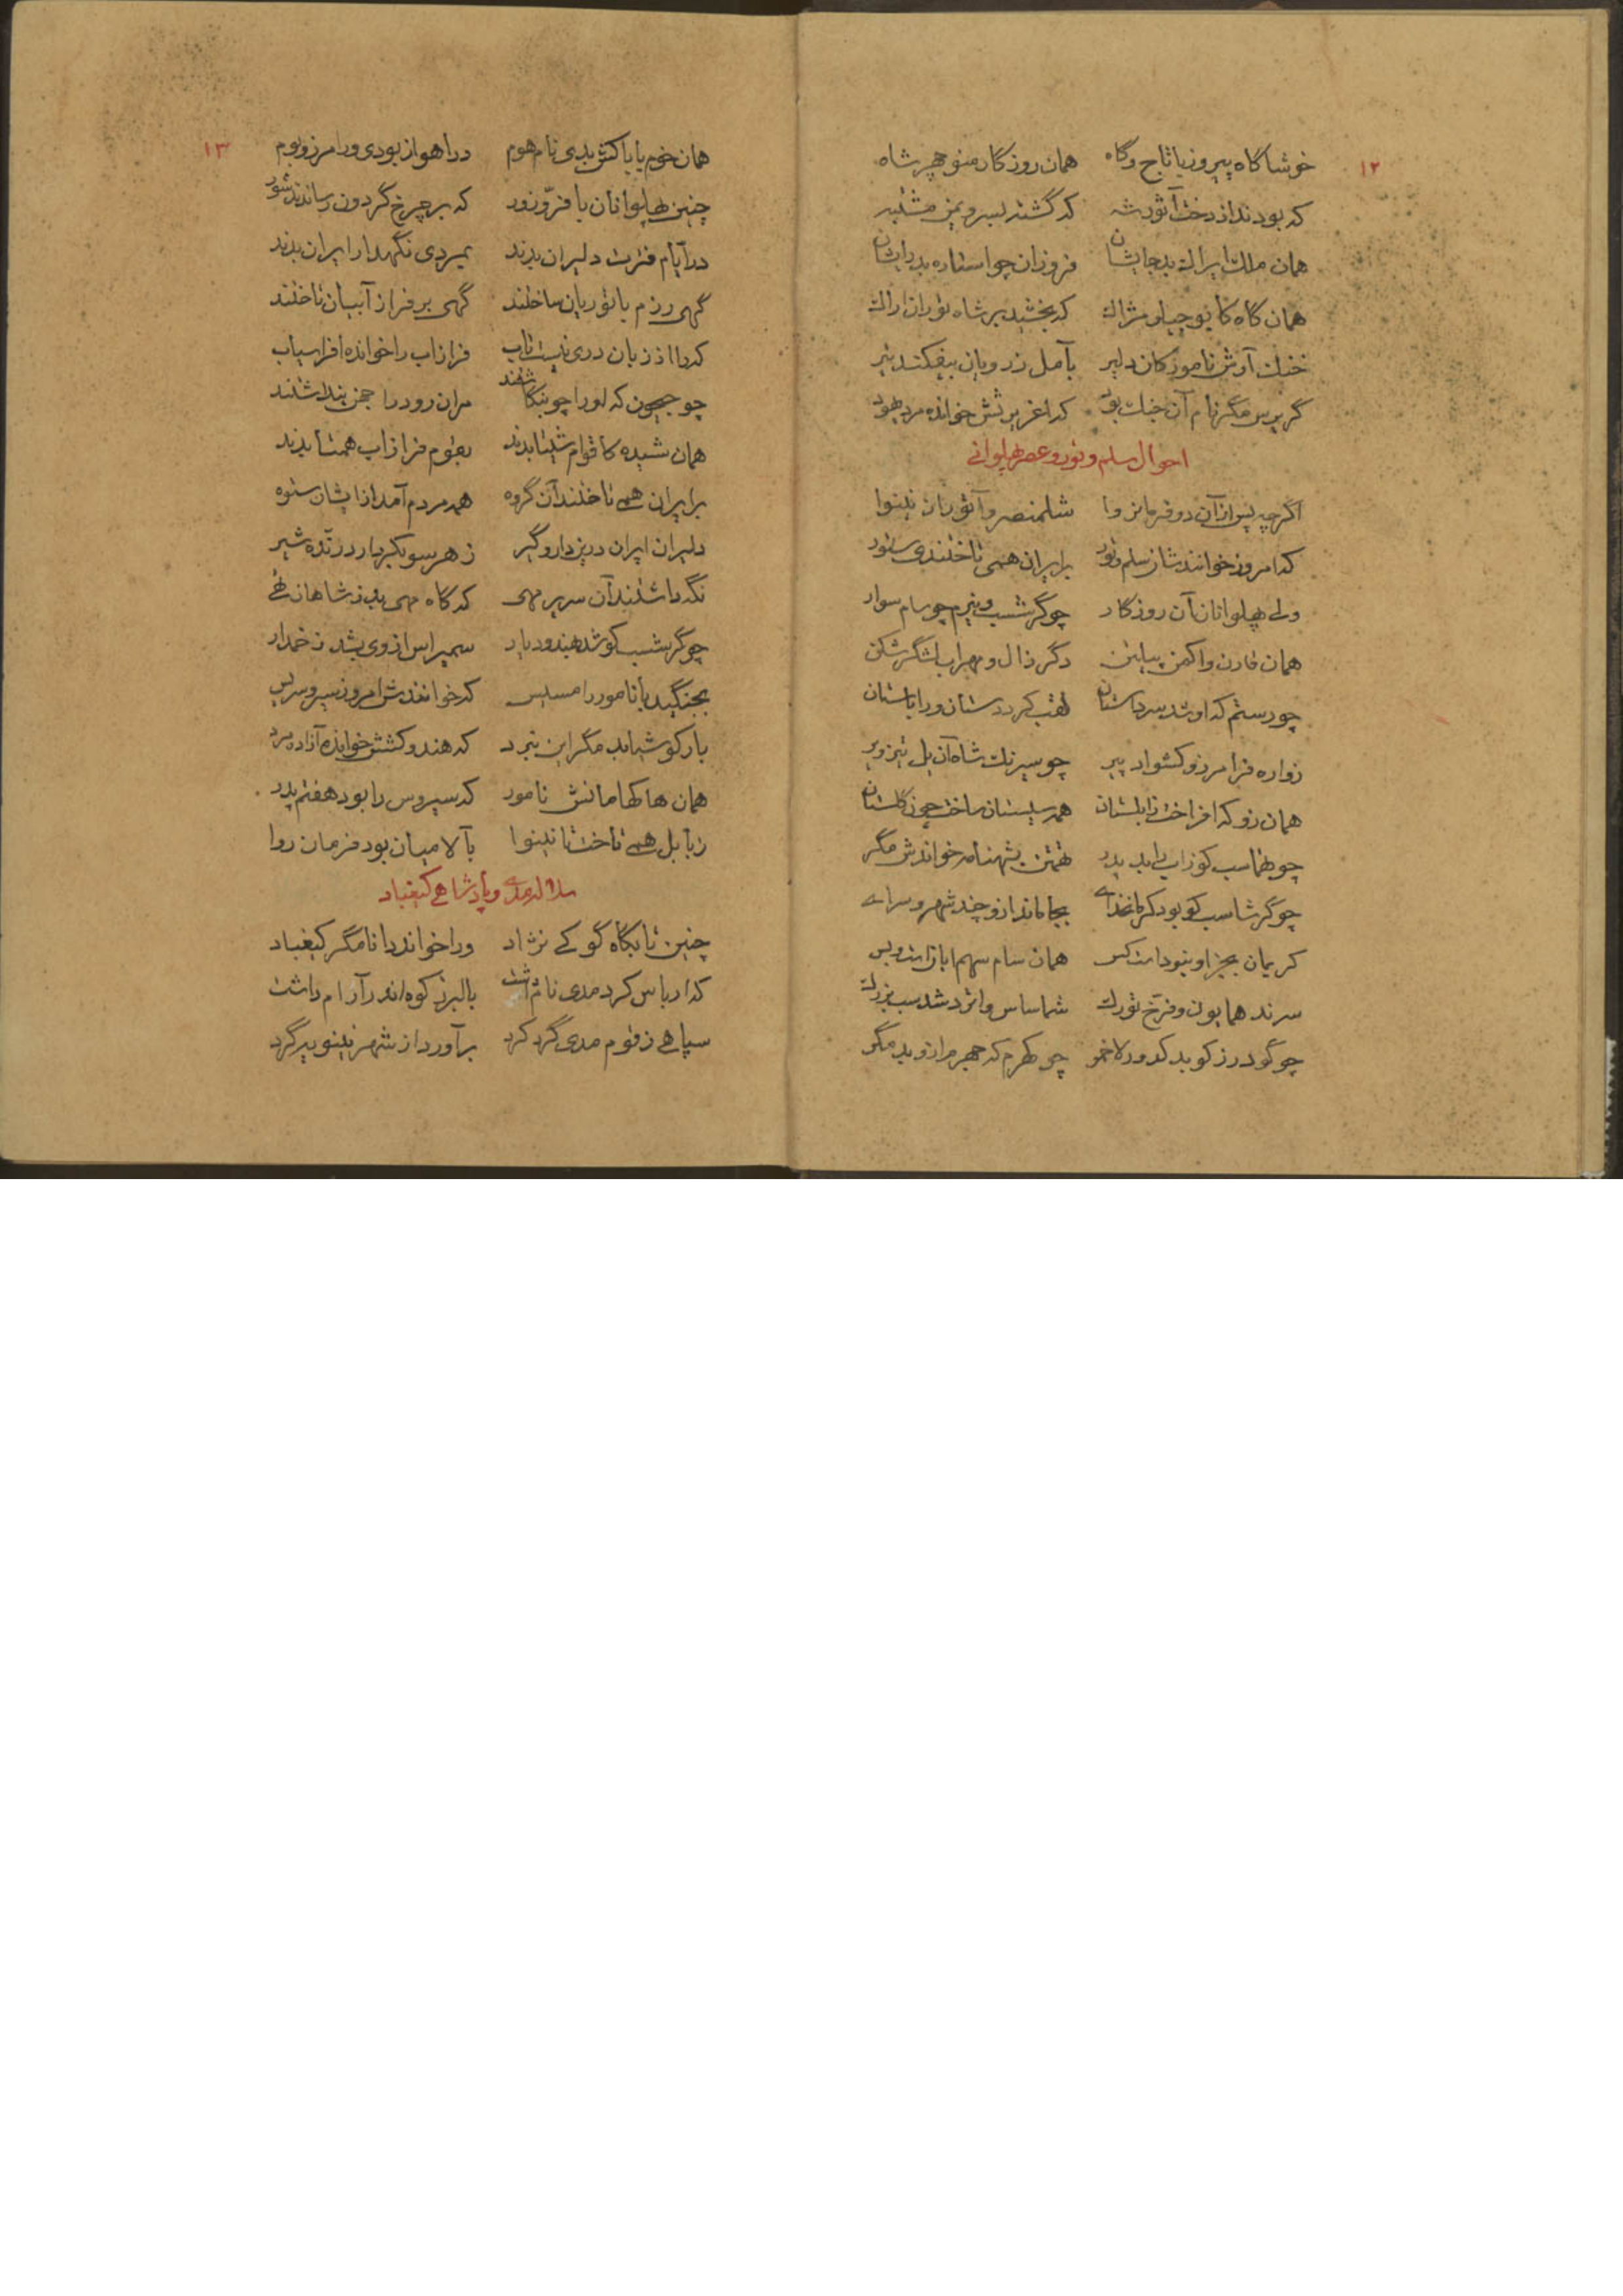 ۱۲
خوشا گاه پیروز با تاج و گاه همان روزگار منوچهر شاه
که بودند از دخت آثور شه که گشتند بسر و یمن مشتبه
همان ملک ایرانک بد جایشان فروزان چو استاره بد رایشان
همان گاه که بخشید بر شاه توران اراک
خنک آرش نامور کان دلیر بآمل ز رویان بیفکند تیر
گر پرس مگر نام آن جنک بود که اغریرثش خوانده مرد یهود
احوال سلم و تور و عصر پهلوانی
اگرچه پس از آن دو فرمانروا شلمنصر و آثوریان نینوا
که امروز خوانندشان سلم و تور بر ایران همی تاختندی ستور
ولی پهلوانان آن روزگار چو گرشسب و نیرم چو سام سوار
همان قارن و اکمن پیلتن دگر زال و مهراب لشگرشکن
چو رستم که او شد سر داستان لقب کرد دستان ورا باستان
زواره فرامرز و کشواد پیر چو سیرنک شاه آن یل تیزویر
همان زو که افراخت زابلستان همه سیستان ساخت چون گلستان
چو طهماسب کو زاب را بد پدر تهمتن بشهنامه خواندش مگر
چو گرشاسب کو بود کرمانخدای بجا ماند ازو چند شهر و سرای
کریمان بجز او نبوداست کس همان سام سهم اباز است و بس
سرند همایون و فرّخ تورک شماساس و اترد شد سب بزرک
چو گودرز کو بد چو کهرم که جهرم از او بد مگر
۱۳
همان خوم یا باکش بدی نام هوم در اهواز بودی ورا مرز و بوم
چنین پهلوانان با فرّ و زور که بر چرخ گردون رساندند شور
در ایّام فترت دلیران بدند بمردی نگهدار ایران بدند
گهی رزم با توریان ساختند گهی بر فراز آبیان تاختند
که را از زبان دری نیست تاب فرازاب را خوانده افراسیاب
چو جیحون که او را چو بنگاشتند مران رود را جمن پنداشتند
همان شیده کاقوام شیتا بدند بقوم فرازاب همتا بدند
بر ایران همی تاختند آن گروه همه مردم آمد از ایشان ستوه
دلیران ایران درین دار و گیر ز هر سو بکردار درنّده شیر
نگه داشتند آن سریر مهی که گاه مهی بد ز شاهان تهی
چو گرشسب کو شد بهندو دیار سمیراس از وی بشد زخمدار
بجنگید با نامور رامسیس که خوانندش امروز سیروسریس
بارکوش باید مگر این نبرد که هندوکشش خوانده آزاد مرد
همان هاکهامانش نامور که سیروس را بود هفتم پدر
ز بابل همی تاخت تا نینوا بآلامیان بود فرمان روا
سلاله مدی و پادشاهی کیقباد
چنین تا بگاه گو کی نژاد ورا خواند دانا مگر کیقباد
که ارباس کرد مدی نام داشت بالبرز کوه اندر آرام داشت
سپاهی ز قوم مدی گرد کرد برآورد از شهر نینویر گرد